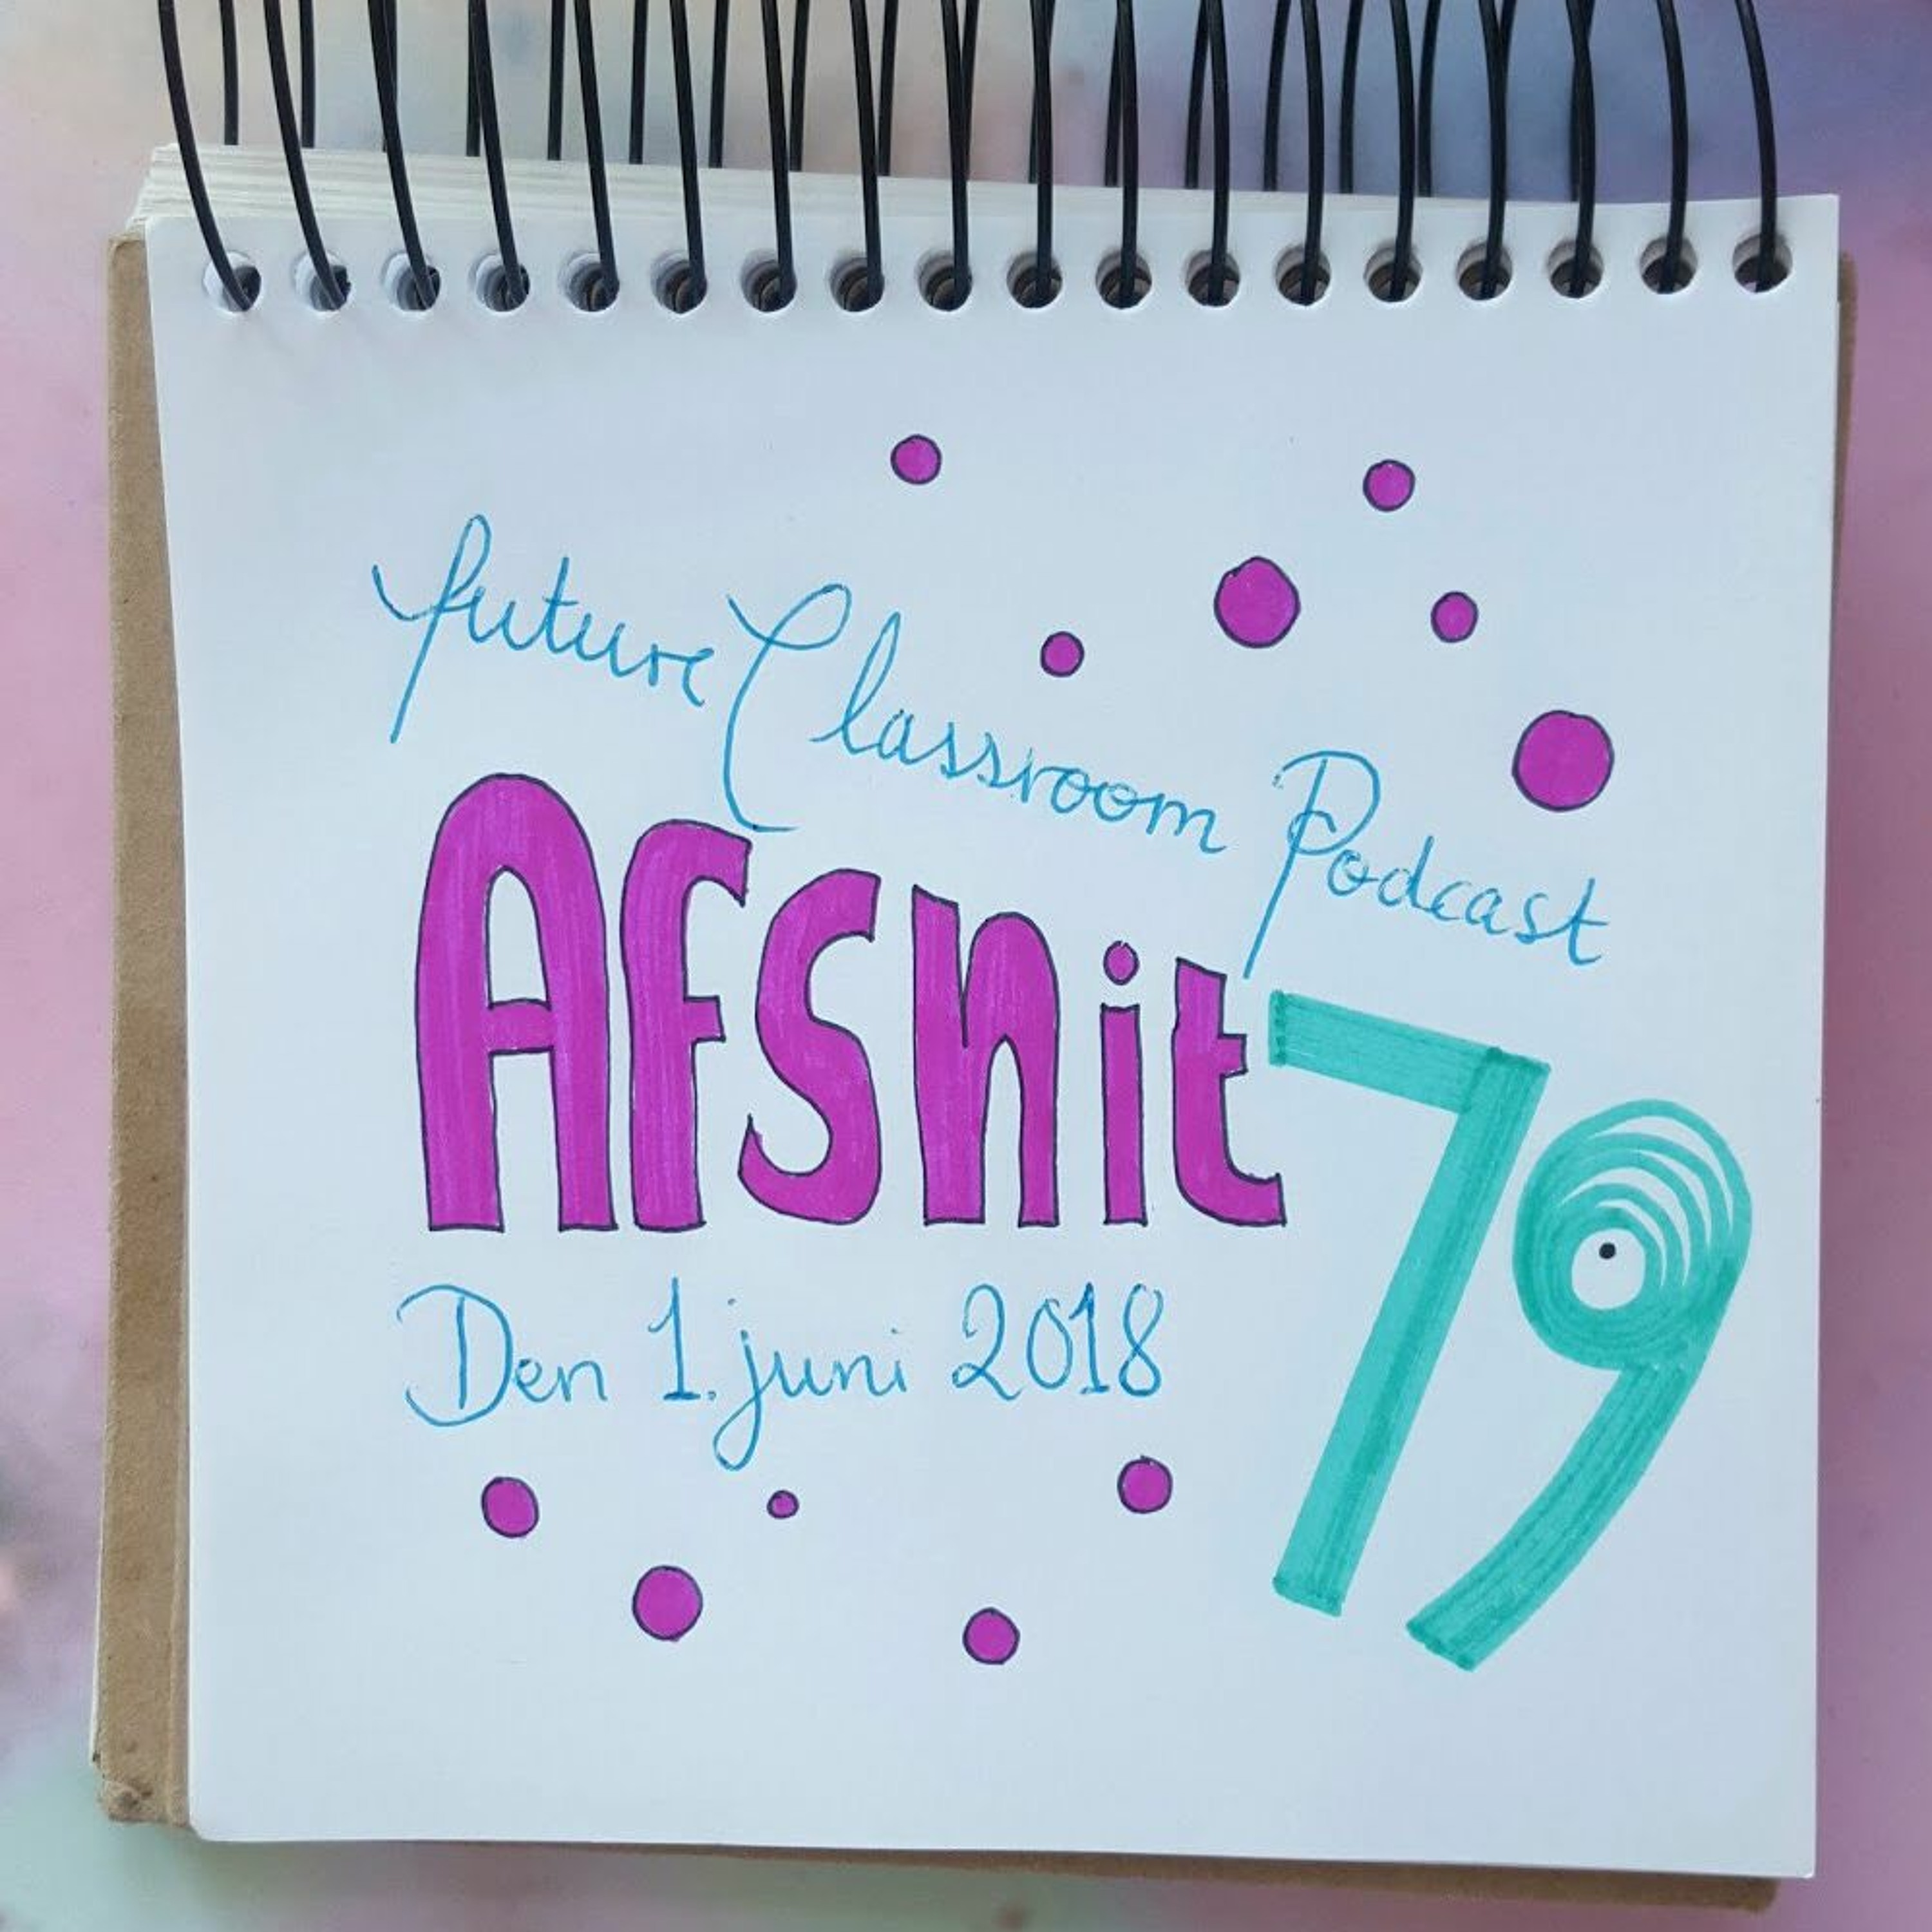 future Classroom Podcast
Afsnit 79
Den 1. juni 2018